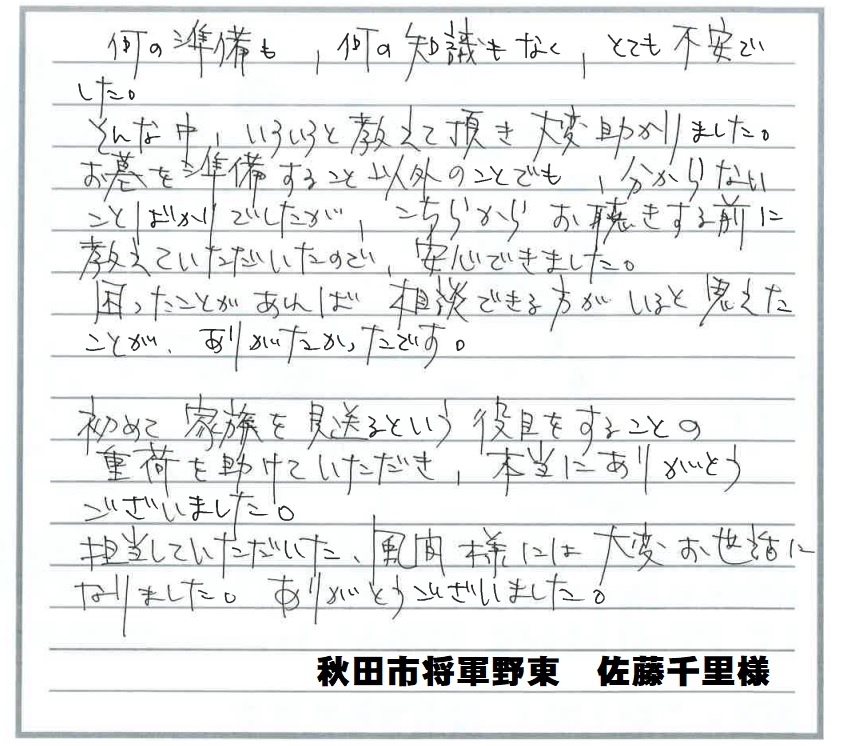 何の準備も，何の知識もなく，とても不安で
した。
そんな中，いろいろと教えて頂き大変助かりました。
お墓を準備すること以外のことでも，分からない
ことばかりでしたが，こちらからお聴きする前に
教えていただいたので，安心できました。
困ったことがあれば相談できる方がいると思えた
ことが、ありがたかったです。
初めて家族を見送るという役目をすることの
重荷を助けていただき，本当にありがとう
ございました。
担当していただいた、風間様には大変お世話に
なりました。ありがとうございました。
秋田市将軍野東　佐藤千里様